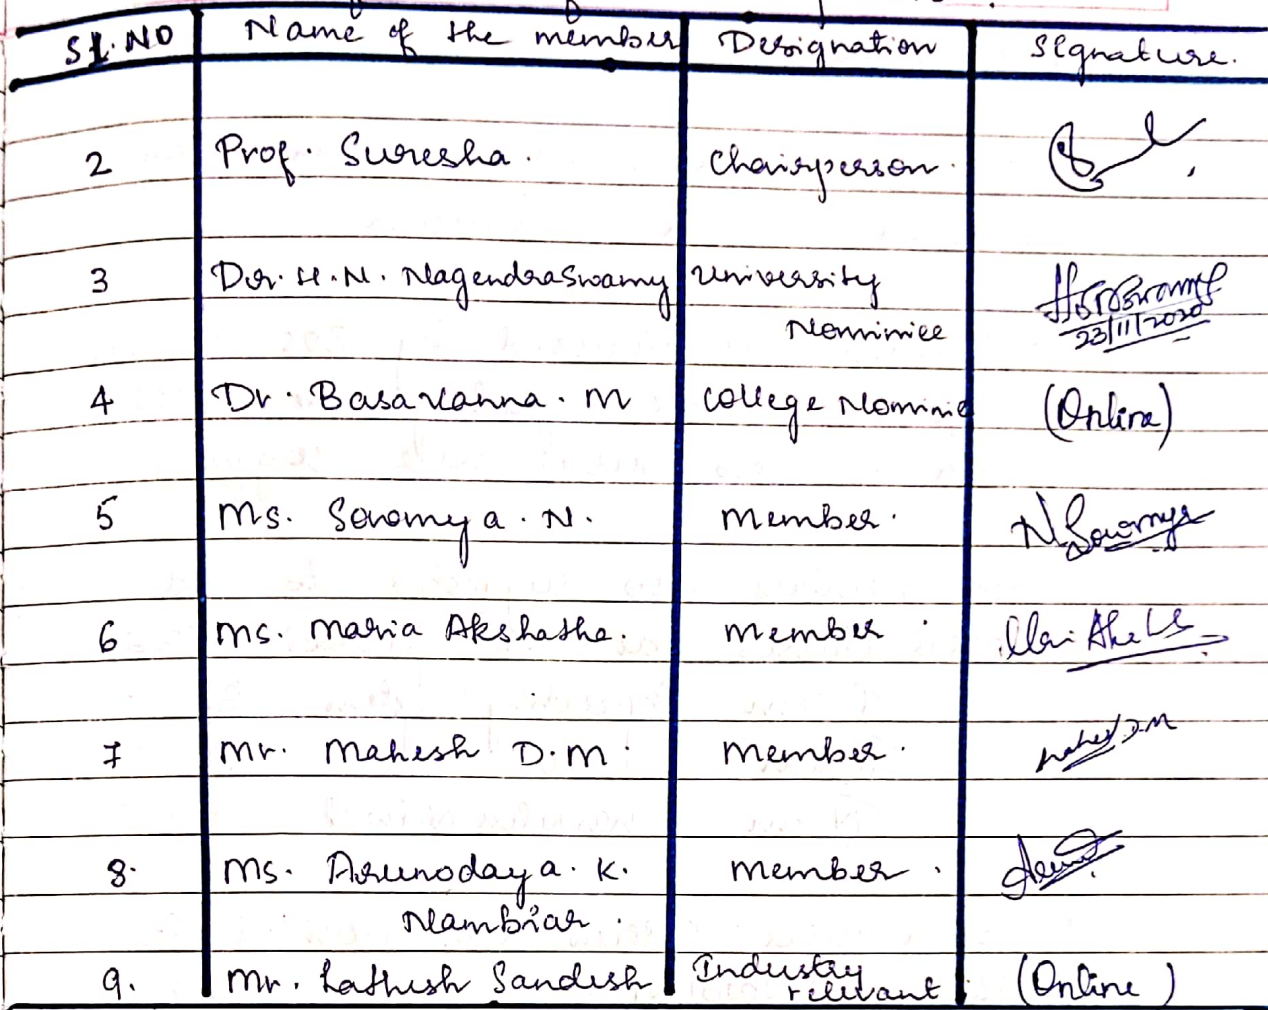 Sl. NO Name of the member Designation Signature.
2 Prof. Suresha. Chairperson.
3 Dr. H.N. NagendraSwamy University
Nominiee
23/11/2020
4 Dr. Basavanna. M College Nominie (Online)
5 Ms. Sowmya. N. Member. N Sowmya
6 Ms. Maria Akshatha. Member.
7 Mr. Mahesh D.M. Member. Mahesh D.M
8. Ms. Arunodaya. K. Member.
Nambiar.
9. Mr. Sandesh Industry
relevant (Online)